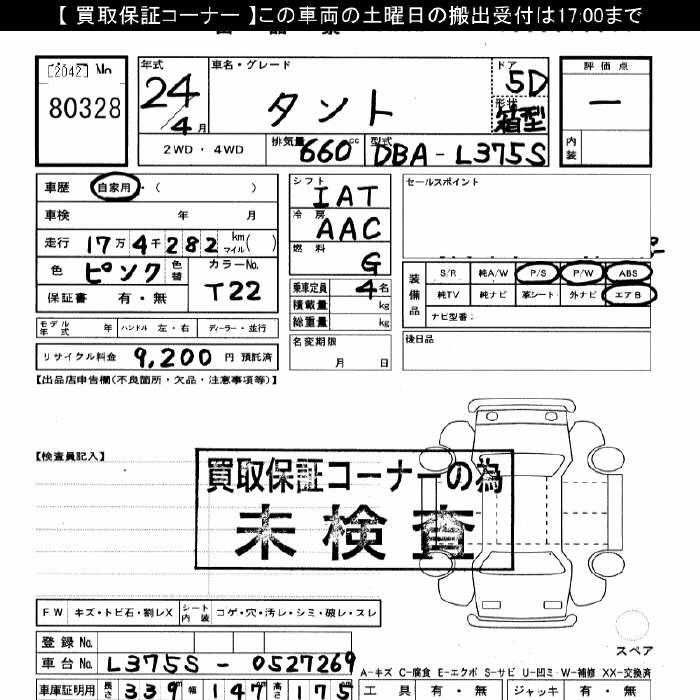 【 買取保証コーナー 】この車両の土曜日の搬出受付は17:00まで
[2042] No.
80328
年式
24
4月
車名・グレード
タント
ドア
5D
形状
箱型
評価点
ー
内装
2WD・4WD
排気量
660cc
型式
DBA-L375S
車歴 自家用・( )
車検 年 月
走行 17万4千282 km マイル( )
色 ピンク 色替
カラーNo.
T22
保証書 有・無
モデル年式 年 ハンドル 左・右 ディーラー・並行
リサイクル料金 9,200 円 預託済
シフト
IAT
冷房
AAC
燃料
G
乗車定員 4名
積載量 kg
総重量 kg
名変期限
月 日
セールスポイント
装備品
S/R 純A/W P/S P/W ABS
純TV 純ナビ 革シート 外ナビ エアB
ナビ型番:
後日品
【出品店申告欄(不良箇所・欠品・注意事項等)】
【検査員記入】
買取保証コーナーの為
未検査
FW キズ・トビ石・割レX シート内装 コゲ・穴・汚レ・シミ・破レ・スレ
スペア
登録 No.
車台 No. L375S-0527269
A-キズ C-腐食 E-エクボ S-サビ U-凹ミ W-補修 XX-交換済
車庫証明用 長さ 339 幅 147 高さ 175
工具 有・無 ジャッキ 有・無